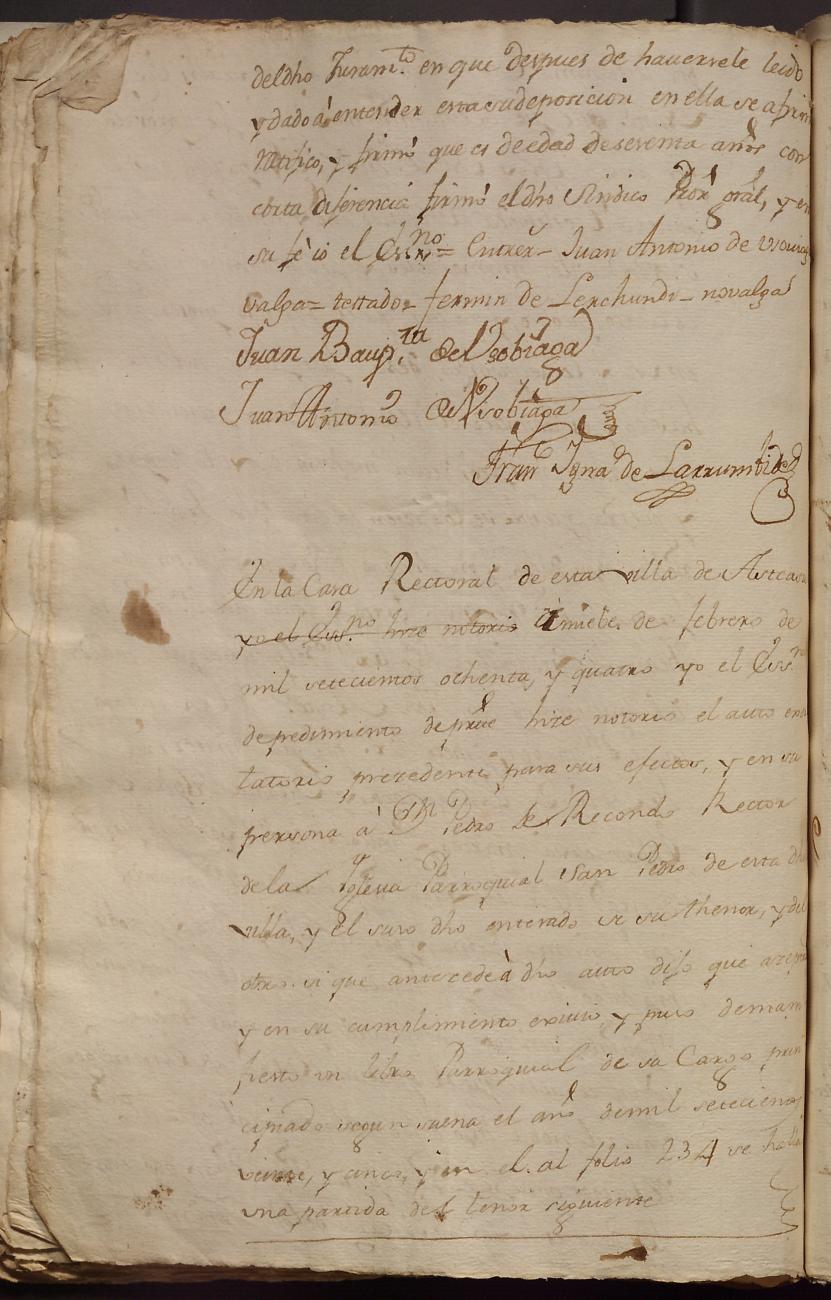 del dho Juram.to en que despues de haversele leido
y dado á entender esta su deposicion en ella se afirm
ratifico, y firmó que es de edad de sesenta años con
corta diferencia firmó el dho Sindico Pror gral, y en
su fè io el Essno = Entrerr.- Juan Antonio de Usovia
valga = testado = fermin de Lerchundi - no valga
Juan Baup.ta de Usobiaga
Juan Antonio de Usobiaga
Fran.co Igna.o de Larrumbide
En la Casa Rectoral de esta villa de Asteasu
yo el Ess.no hize notorio á nuebe de febrero de
mil setecientos ochenta, y quatro yo el Ess.no
de pedimiento de parte hize notorio el auto exor
tatorio precedente para sus efectos, y en su
persona á Dn Pedro de Recondo Rector
de la Iglesia Parroquial San Pedro de esta dha
villa, y el suso dho enterado de su thenor, y del
otro si que antecede à dho auto dijo que azepta
y en su cumplimiento exivio y puso de mani
fiesto un libro Parroquial de su Cargo prin
cipiado segun suena el año de mil setecientos
veinte, y cinco, y en el al folio 234 se halla
una partida del tenor siguiente